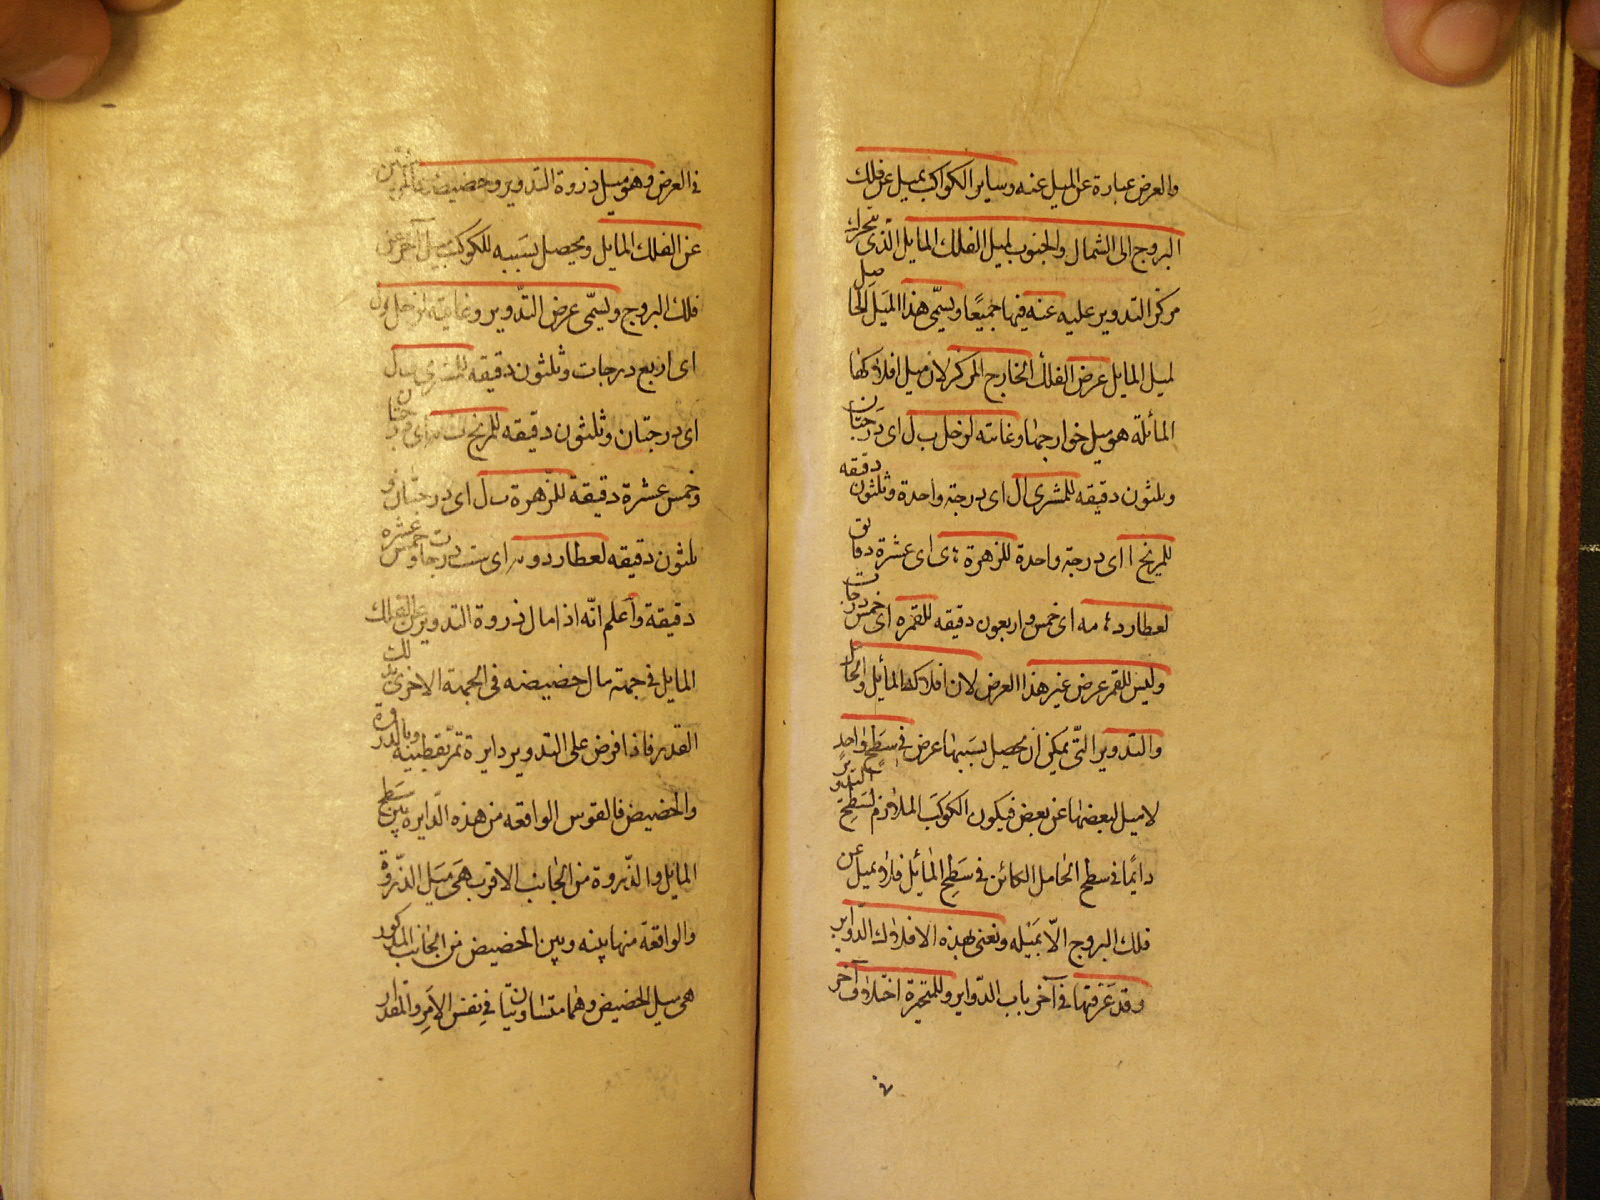 والعرض عبارة عن الميل عنه وساير الكواكب يميل عن فلك
البروج الى الشمال والجنوب لميل الفلك المايل الذى يتحرك
مركز التدوير عليه عنه فيها جميعًا ويسمّى هذا الميل الحاصل
لميل المايل عرض الفلك الخارج المركز لان ميل افلاكها
المائلة هو ميل خوارجها وغايته لزحل ب ل اى درجتان
وثلثون دقيقه للمشرى ا ل اى درجة واحدة وثلثون دقيقه
للمريخ ا اى درجة واحدة للزهرة ى اى عشرة دقايق
لعطارد مه اى خمس واربعون دقيقه للقمر ه اى خمس درجات
وليس للقمر عرض غير هذا العرض لان افلاكه المائل والحامل
والتدوير التّى يمكن ان يحصل بسببها عرض فى سطح واحد
لا ميل لبعضها عن بعض فيكون الكوكب الملازم لسطح التدوير
دايمًا فى سطح الحامل الكائن فى سطح المائل فلا يميل عن
فلك البروج الّا بميله ونعنى بهذه الافلاك الدّواير
وقد عرفتها فى آخر باب الدّواير وللمتحيرة اختلاف آخر
فى العرض وهو ميل ذروة التدوير وحضيضه
عن الفلك المايل ويحصل بسببه للكوكب ميل آخر عن
فلك البروج ويسمّى عرض التّدوير وغايته لزحل
اى اربع درجات وثلثون دقيقه للمشرى ب ل
اى درجتان وثلثون دقيقه للمريخ اى درجتان
وخمس عشرة دقيقة للزّهرة ب ل اى درجتان و
ثلثون دقيقه لعطارد و اى ست درجات وخمس عشره
دقيقة وأعلم انّه اذا مال ذروة التدوير عن الفلك
المايل فى جهة مال حضيضه فى الجهة الاخرى بذلك
القدر فاذا فرض على التدوير دايرة تمرّ بقطبيه وبالذروة
والحضيض فالقوس الواقعه من هذه الدّايرة بين سطح
المايل والذّروة من الجانب الاقرب هى ميل الذّروة
والواقعة منها بينه وبين الحضيض من الجانب المذكور
هى ميل الحضيض وهما متساويتان فى نفس الامر والمقدار